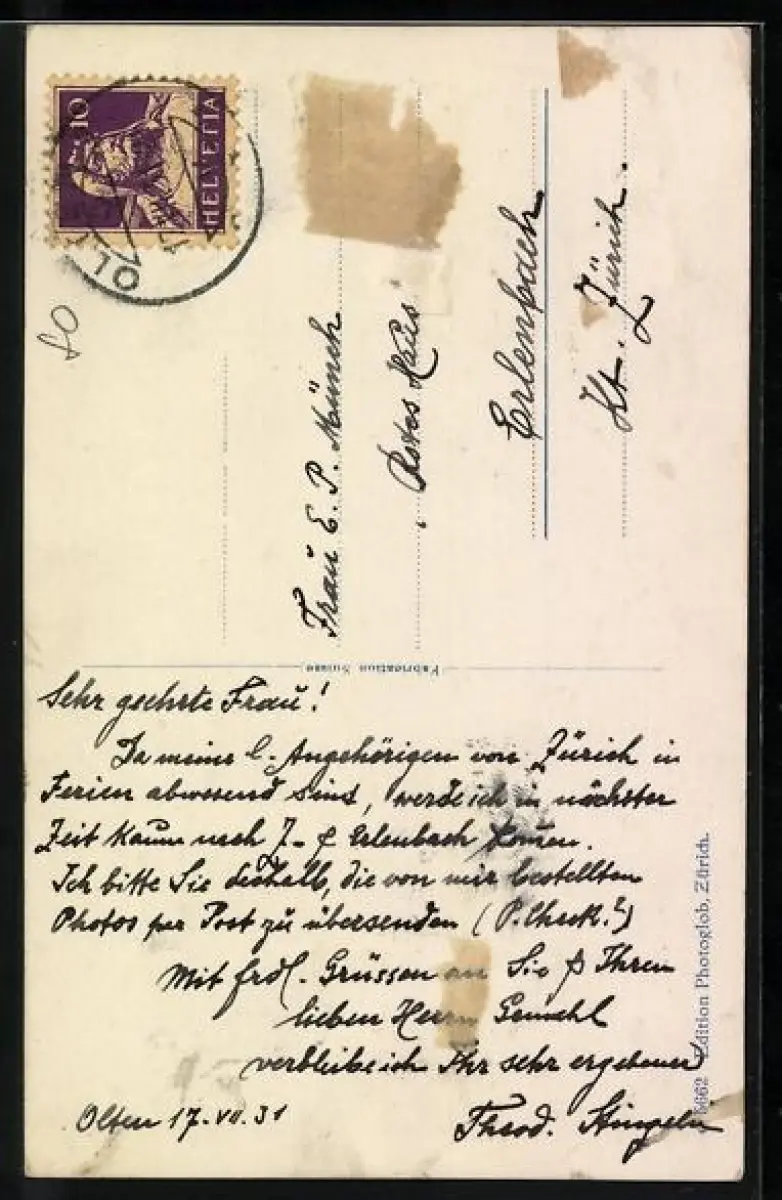 10
HELVETIA
OLT
Frau E. P. Münch
Rotes Haus
Erlenbach
Kt. Zürich.
Fabrication Suisse
Sehr geehrte Frau!
Da meine l. Angehörigen von Zürich in
Ferien abwesend sind, werde ich in nächster
Zeit kaum nach Z. & Erlenbach kommen.
Ich bitte Sie deshalb, die von mir bestellten
Photos per Post zu übersenden (P. Check.?)
Mit frdl. Grüssen an Sie & Ihren
lieben Herrn Gemahl
verbleibe ich Ihr sehr ergebener
Olten 17.VII.31
Theod.
6662 Edition Photoglob, Zürich.